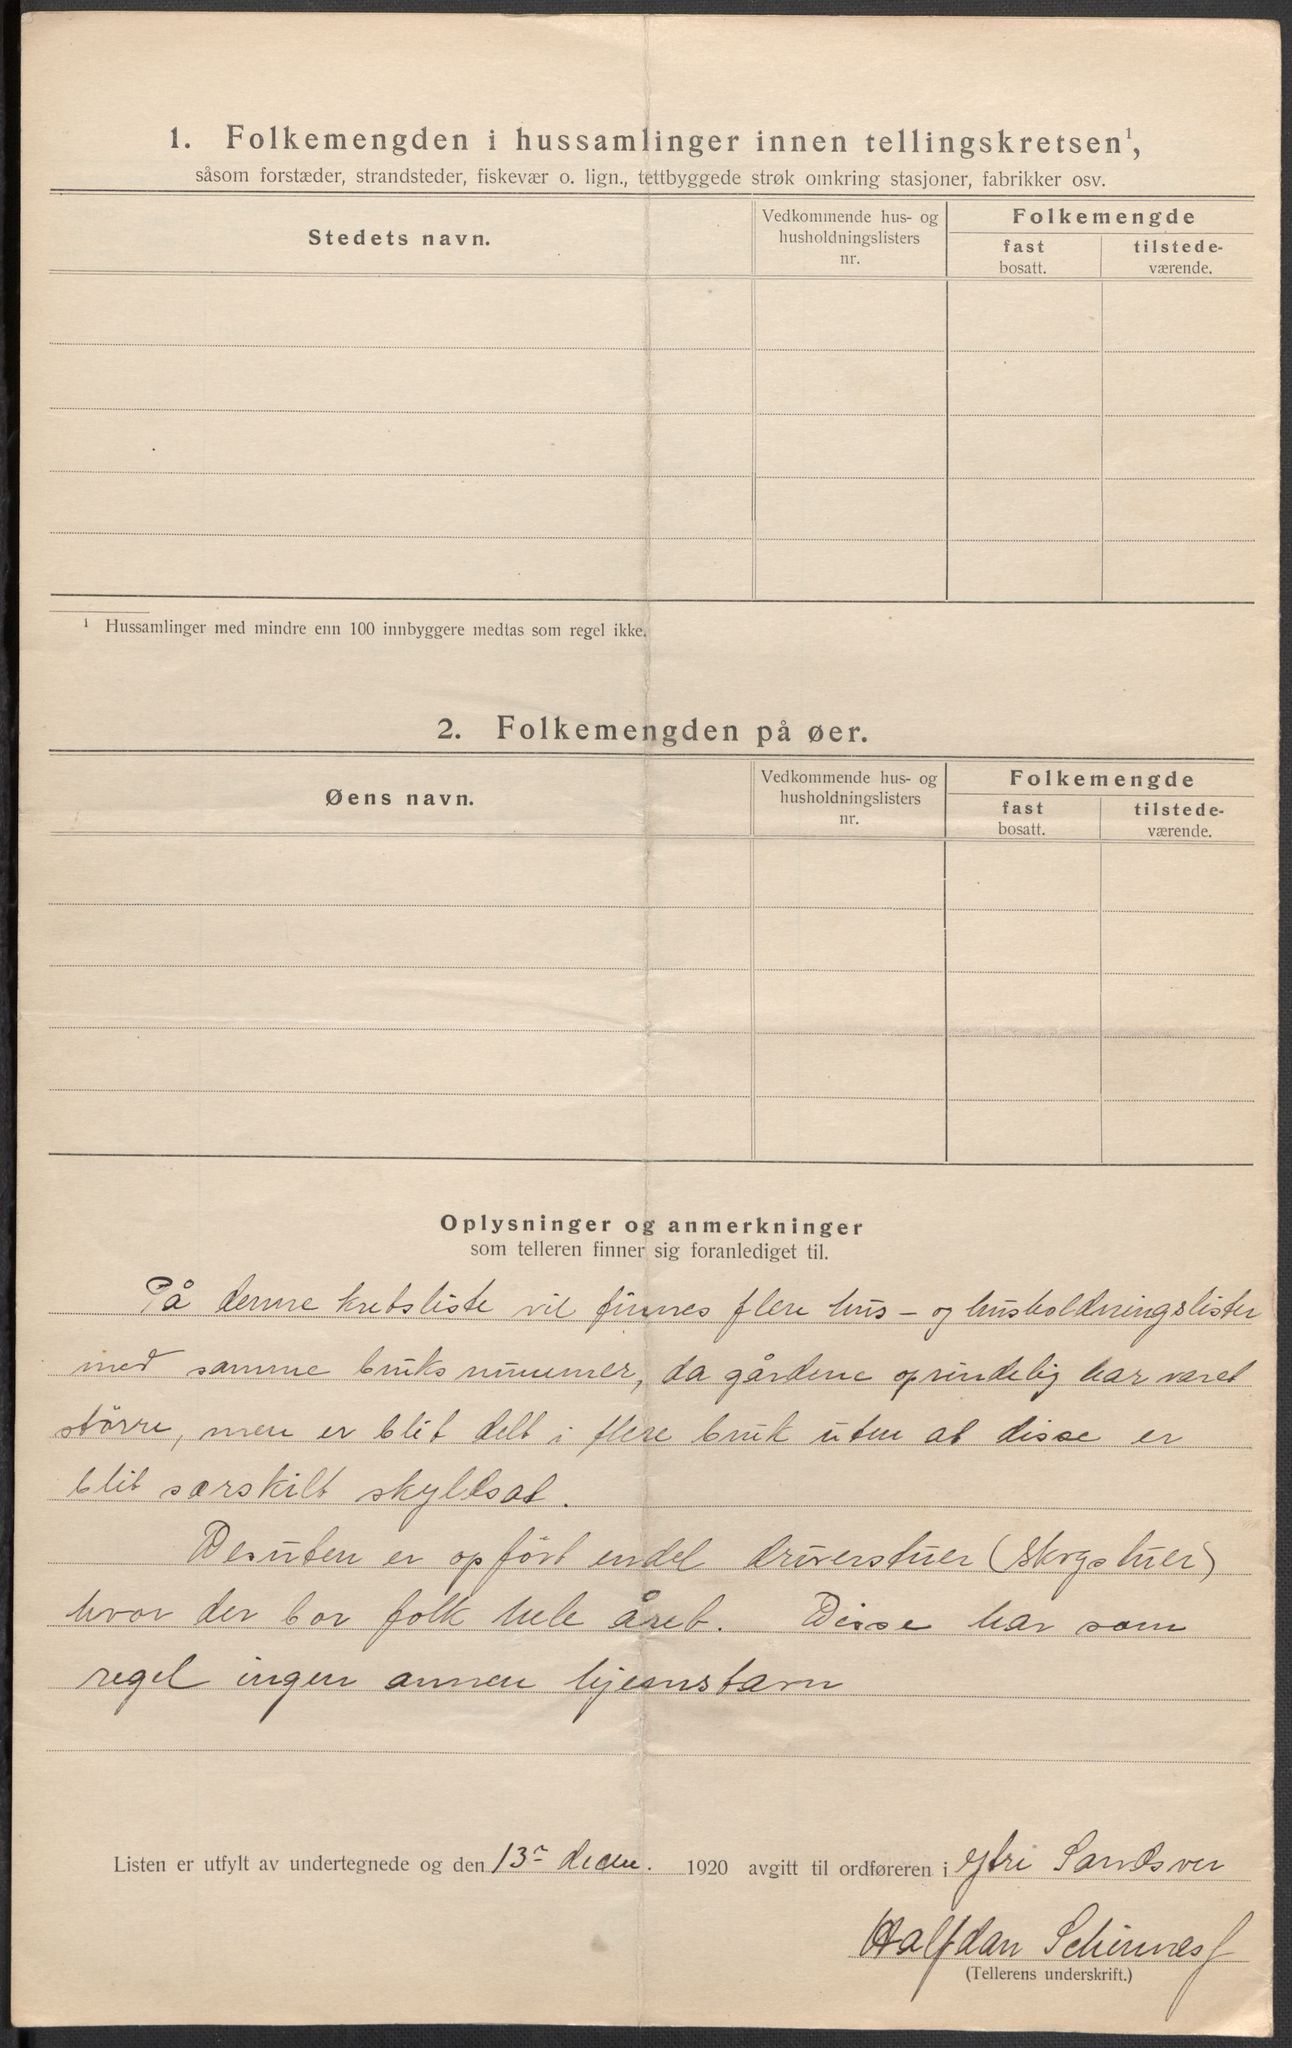 1. Folkemengden i hussamlinger innen tellingskretsen¹,
såsom forstæder, strandsteder, fiskevær o. lign., tettbyggede strøk omkring stasjoner, fabrikker osv.
Stedets navn.
Vedkommende hus- og
husholdningslisters
nr.
Folkemengde
fast
bosatt.
tilstede-
værende.
¹ Hussamlinger med mindre enn 100 innbyggere medtas som regel ikke.
2. Folkemengden på øer.
Øens navn.
Vedkommende hus- og
husholdningslisters
nr.
Folkemengde
fast
bosatt.
tilstede-
værende.
Oplysninger og anmerkninger
som telleren finner sig foranlediget til.
På denne kretsliste vil finnes flere hus- og husholdningslister
med samme bruksnummer, da gårdene oprindelig har været
större, men er blit delt i flere bruk uten at disse er
blit særskilt skyldsat.
Desuten er opfört endel driverstuer (skogstuer)
hvor der bor folk hele året. Disse har som
regel ingen annen hjemstavn
Listen er utfylt av undertegnede og den 13de decem. 1920 avgitt til ordføreren i Ytre Sandsver
Halfdan
(Tellerens underskrift.)